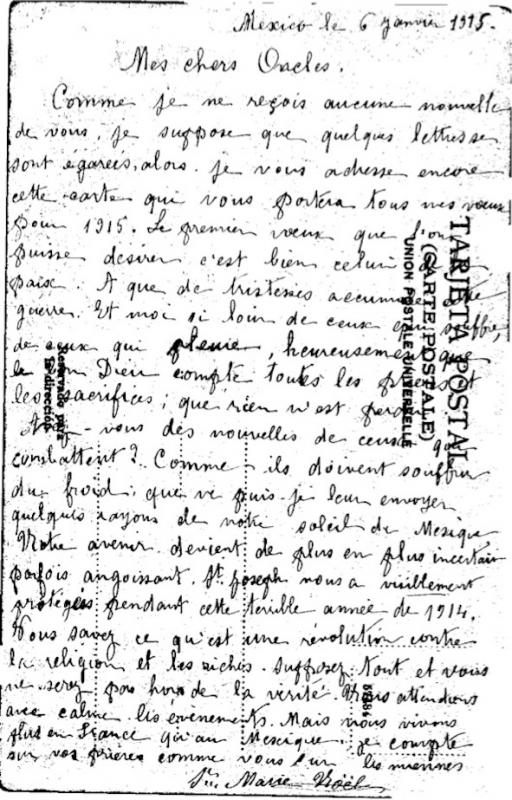 Mexico le 6 Janvier 1915.
Mes chers Oncles.
Comme je ne reçois aucune nouvelle
de vous, je suppose que quelques lettres se
sont égarées, alors je vous adresse encore
cette carte qui vous portera tous mes vœux
pour 1915. Le premier vœux que l'on
puisse desirer c'est bien celui de la
paix. A que de tristesses accumule
guerre. Et moi si loin de ceux qui souffre,
de ceux qui pleure, heureusement que
le bon Dieu compte toutes les et
les sacrifices; que rien n'est
vous des nouvelles de ceux qui
combattent? Comme ils doivent souffrir
du froid, que ne puis-je leur envoyer
quelques rayons de notre soleil du Mexique
Notre avenir devient de plus en plus incertain
parfois angoissant. St. Joseph nous a visiblement
protégés pendant cette terrible année de 1914.
Vous savez ce qu'est une révolution contre
la religion et les riches. Supposez Tout et vous
ne serez pas hors de la vérité. Nous attendons
avec calme les évenements. Mais nous vivons
plus en France qu'au Mexique. je compte
sur vos prières comme vous sur les miennes
Sr. Marie Noël
TARJETA POSTAL
(CARTE POSTALE)
UNION POSTALE UNIVERSELLE
Reservado para
la dirección